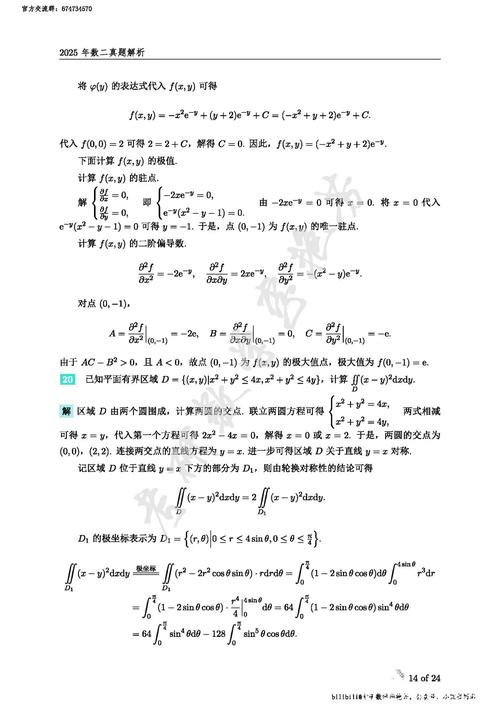 官方交流群：674734570
2025 年数二真题解析
将 φ(y) 的表达式代入 f(x,y) 可得
f(x,y) = −x²e⁻ʸ + (y+2)e⁻ʸ + C = (−x² + y + 2)e⁻ʸ + C.
代入 f(0,0) = 2 可得 2 = 2 + C，解得 C = 0. 因此，f(x,y) = (−x² + y + 2)e⁻ʸ.
下面计算 f(x,y) 的极值.
计算 f(x,y) 的驻点.
解 { ∂f/∂x = 0, ∂f/∂y = 0, 即 { −2xe⁻ʸ = 0, e⁻ʸ(x² − y − 1) = 0. 由 −2xe⁻ʸ = 0 可得 x = 0. 将 x = 0 代入
e⁻ʸ(x² − y − 1) = 0 可得 y = −1. 于是，点 (0,−1) 为 f(x,y) 的唯一驻点.
计算 f(x,y) 的二阶偏导数.
∂²f/∂x² = −2e⁻ʸ, ∂²f/∂x∂y = 2xe⁻ʸ, ∂²f/∂y² = −(x² − y)e⁻ʸ.
对点 (0,−1)，
A = ∂²f/∂x²|(0,−1) = −2e, B = ∂²f/∂x∂y|(0,−1) = 0, C = ∂²f/∂y²|(0,−1) = −e.
由于 AC − B² > 0，且 A < 0，故点 (0,−1) 为 f(x,y) 的极大值点，极大值为 f(0,−1) = e.
20 已知平面有界区域 D = {(x,y)|x² + y² ≤ 4x, x² + y² ≤ 4y}，计算 ∬_D (x − y)²dxdy.
解 区域 D 由两个圆围成，计算两圆的交点. 联立两方程可得 { x² + y² = 4x, x² + y² = 4y, 两式相减
可得 x = y，代入第一个方程可得 2x² − 4x = 0，解得 x = 0 或 x = 2. 于是，两圆的交点为
(0,0)，(2,2). 连接两交点的直线方程为 y = x. 进一步可得区域 D 关于直线 y = x 对称.
记区域 D 位于直线 y = x 下方的部分为 D₁，则由轮换对称性的结论可得
∬_D (x − y)²dxdy = 2 ∬_D₁ (x − y)²dxdy.
D₁ 的极坐标表示为 D₁ = {(r,θ)|0 ≤ r ≤ 4 sin θ, 0 ≤ θ ≤ π/4}.
∬_D₁ (x − y)²dxdy 极坐标═ ∬_D₁ (r² − 2r² cos θ sin θ) · rdrdθ = ∫₀^(π/4) (1 − 2 sin θ cos θ)dθ ∫₀^(4 sin θ) r³dr
= ∫₀^(π/4) (1 − 2 sin θ cos θ) · r⁴/4|₀^(4 sin θ) dθ = 64 ∫₀^(π/4) (1 − 2 sin θ cos θ) sin⁴ θdθ
= 64 ∫₀^(π/4) sin⁴ θdθ − 128 ∫₀^(π/4) sin⁵ θ cos θdθ.
14 of 24